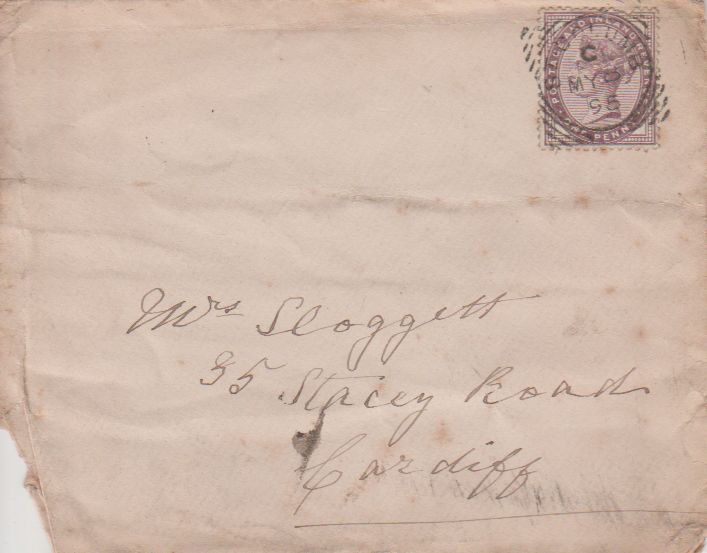 POSTAGE AND INLAND REVENUE
ONE PENNY
C
MY 8
95
Mrs Sloggett
35 Stacey Road
Cardiff